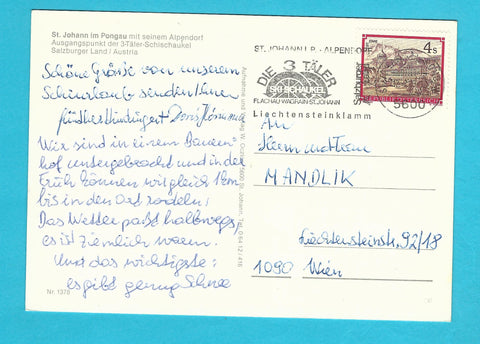 St. Johann im Pongau mit seinem Alpendorf
Ausgangspunkt der 3-Täler-Schischaukel
Salzburger Land / Austria
Schöne Grüße von unserem
Schiurlaub senden Ihnen
Doris
Wir sind in einem Bauern
hof untergebracht und in der
Früh können wir gleich 1 km
bis in den Ort rodeln!
Das Wetter paßt halbwegs,
es ist ziemlich warm.
Und das wichtigste:
es gibt genug Schnee
Nr. 1375
ST. JOHANN I. P. - ALPENDORF
DIE 3 TÄLER
SKISCHAUKEL
FLACHAU-WAGRAIN-ST.JOHANN
Liechtensteinklamm
Salzburger
4 S
REPUBLIK ÖSTERREICH
An
MANDLIK
Liechtensteinstr. 92/18
1090 Wien